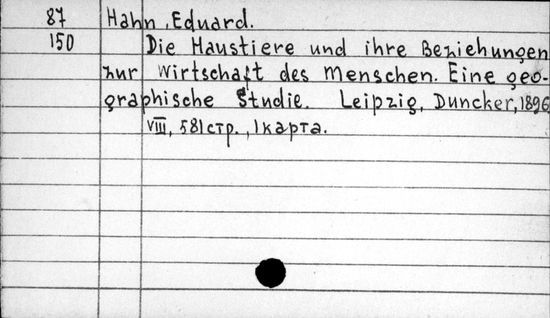 87 Hahn, Eduard.
150 Die Haustiere und ihre Beziehungen
zur Wirtschaft des Menschen. Eine geo-
graphische Studie. Leipzig, Duncker, 1896
VIII, 581 стр., 1 карта.